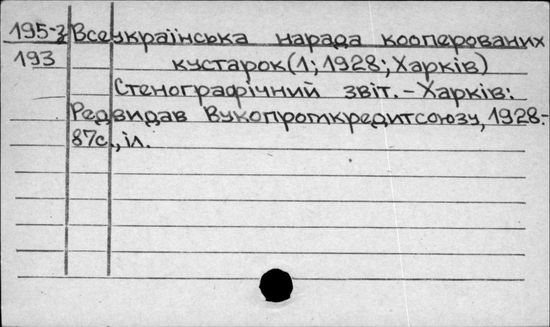 195-3 Всеукраїнська нарада кооперованих
193 кустарок (1; 1928; Харків)
Стенографічний звіт. - Харків:
Редвидав Вукопромкредитсоюзу, 1928.-
87с., іл.